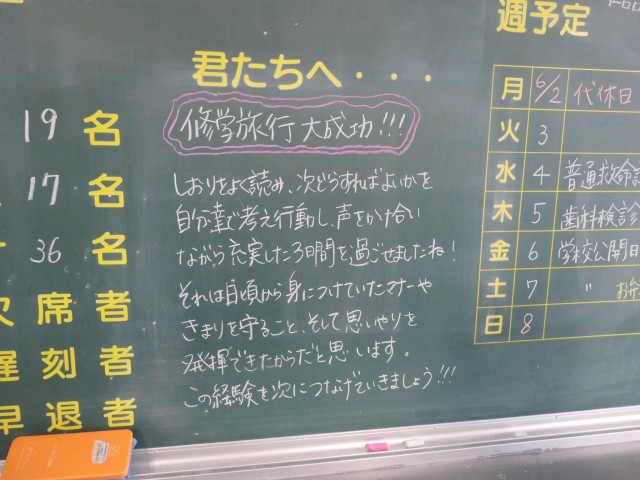 君たちへ・・・
修学旅行大成功!!!
しおりをよく読み、次どうすればよいかを
自分達で考え行動し、声をかけ合い
ながら充実した3日間を過ごせましたね!
それは日頃から身につけていたマナーや
きまりを守ること、そして思いやりを
発揮できたからだと思います。
この経験を次につなげていきましょう!!!
19名
17名
36名
欠席者
遅刻者
早退者
週予定
月 6/2 代休日
火 3
水 4 普通救命
木 5 歯科検診
金 6 学校公開日
土 7 〃 お弁
日 8